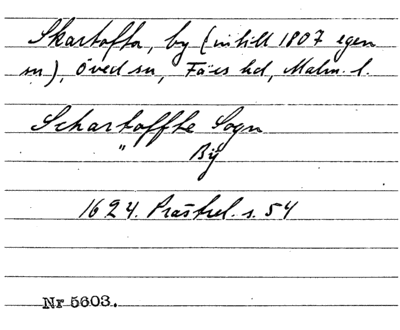 Skartofta, by (intill 1807 egen
sn), Öved sn, Färs hd, Malm. l.
Schartoffte Sogn
" Bÿ
1624. Prästrel. s. 54
Nr 5603.